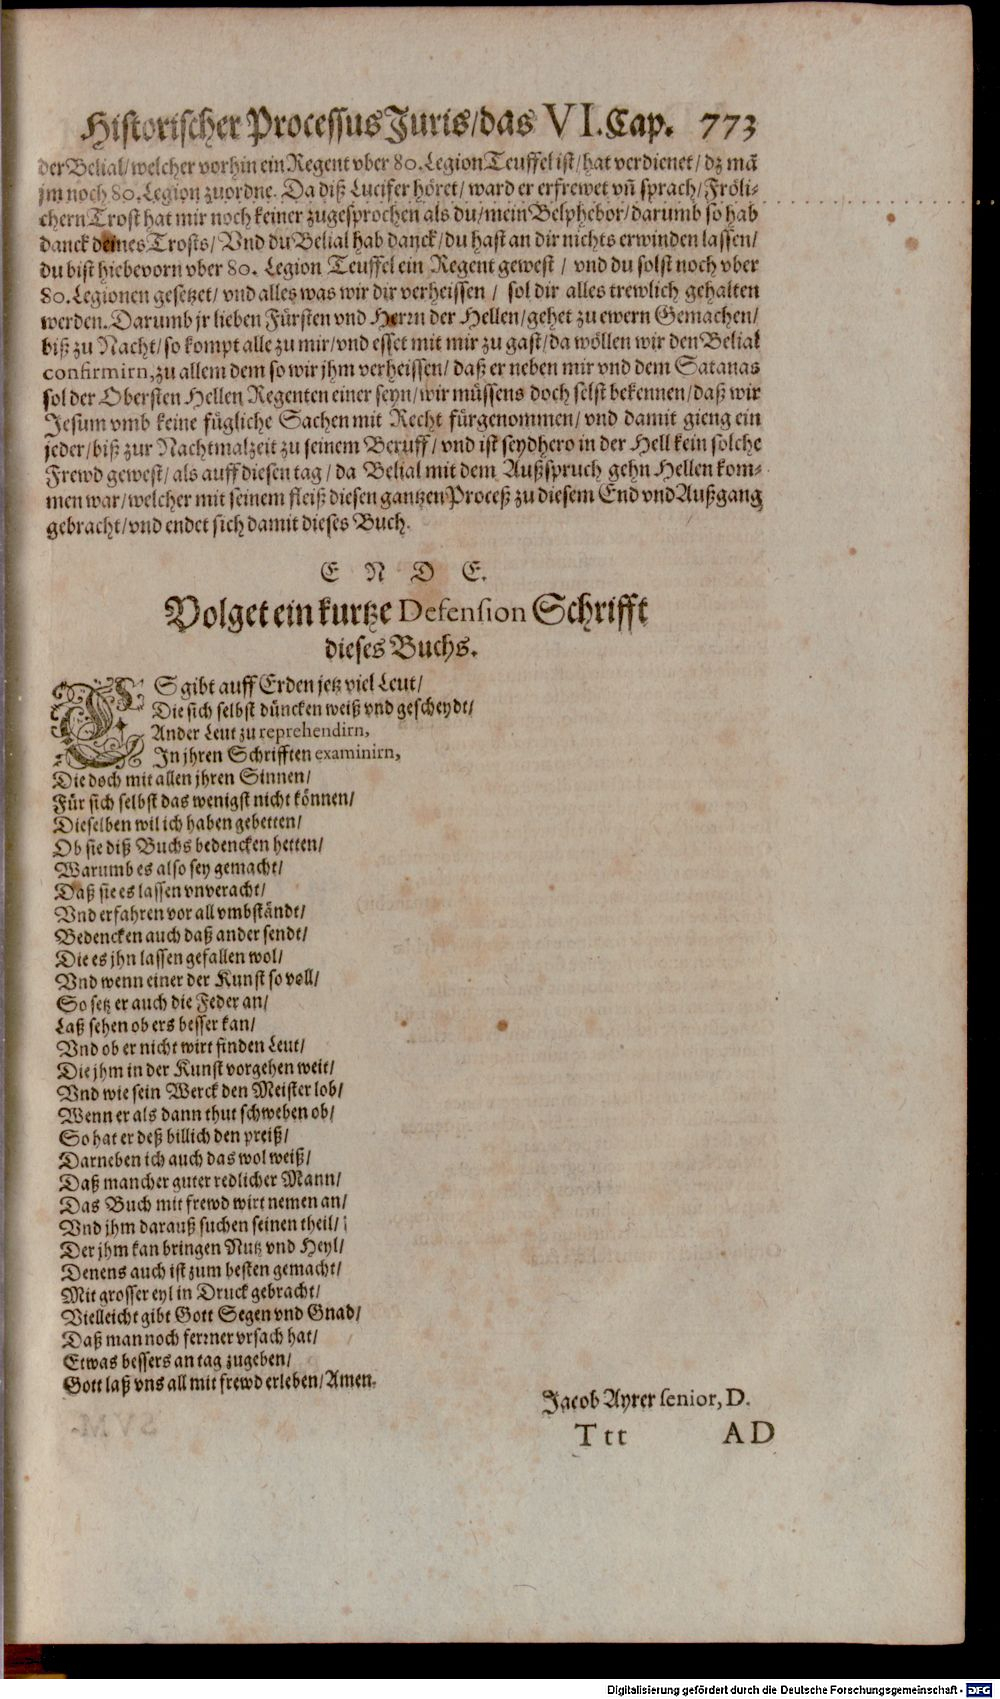 Historischer Processus Juris/das VI.Cap. 773
der Belial/welcher vorhin ein Regent vber 80.Legion Teuffel ist/hat verdienet/dz mā
jm noch 80.Legion zuordne. Da diß Lucifer höret/ward er erfrewet vñ sprach/Fröli-
chern Trost hat mir noch keiner zugesprochen als du/mein Belphebor/darumb so hab
danck deines Trosts/Vnd du Belial hab danck/du hast an dir nichts erwinden lassen/
du bist hiebevorn vber 80. Legion Teuffel ein Regent gewest / vnd du solst noch vber
80.Legionen gesetzet/vnd alles was wir dir verheissen / sol dir alles trewlich gehalten
werden. Darumb jr lieben Fürsten vnd Herrn der Hellen/gehet zu ewern Gemachen/
biß zu Nacht/so kompt alle zu mir/vnd esset mit mir zu gast/da wöllen wir den Belial
confirmirn,zu allem dem so wir jhm verheissen/ daß er neben mir vnd dem Satanas
sol der Obersten Hellen Regenten einer seyn/wir müssens doch selst bekennen/daß wir
Jesum vmb keine fügliche Sachen mit Recht fürgenommen/vnd damit gieng ein
jeder/biß zur Nachtmalzeit zu seinem Beruff/vnd ist seydhero in der Hell kein solche
Frewd gewest/als auff diesen tag/da Belial mit dem Außspruch gehn Hellen kom-
men war/welcher mit seinem fleiß diesen gantzen Proceß zu diesem End vnd Außgang
gebracht/vnd endet sich damit dieses Buch.
E N D E.
Volget ein kurtze Defension Schrifft
dieses Buchs.
ES gibt auff Erden jetz viel Leut/
Die sich selbst düncken weiß vnd gescheydt/
Ander Leut zu reprehendirn,
In jhren Schrifften examinirn,
Die doch mit allen jhren Sinnen/
Für sich selbst das wenigst nicht können/
Dieselben wil ich haben gebetten/
Ob sie diß Buchs bedencken hetten/
Warumb es also sey gemacht/
Daß sie es lassen vnveracht/
Vnd erfahren vor all vmbständt/
Bedencken auch daß ander sendt/
Die es jhn lassen gefallen wol/
Vnd wenn einer der Kunst so voll/
So setz er auch die Feder an/
Laß sehen ob ers besser kan/
Vnd ob er nicht wirt finden Leut/
Die jhm in der Kunst vorgehen weit/
Vnd wie sein Werck den Meister lob/
Wenn er als dann thut schweben ob/
So hat er deß billich den preiß/
Darneben ich auch das wol weiß/
Daß mancher guter redlicher Mann/
Das Buch mit frewd wirt nemen an/
Vnd jhm darauß suchen seinen theil/
Der jhm kan bringen Nutz vnd Heyl/
Denens auch ist zum besten gemacht/
Mit grosser eyl in Druck gebracht/
Vielleicht gibt Gott Segen vnd Gnad/
Daß man noch ferrner vrsach hat/
Etwas bessers an tag zugeben/
Gott laß vns all mit frewd erleben/Amen.
Jacob Ayrer senior, D.
Ttt AD
Digitalisierung gefördert durch die Deutsche Forschungsgemeinschaft - DFG